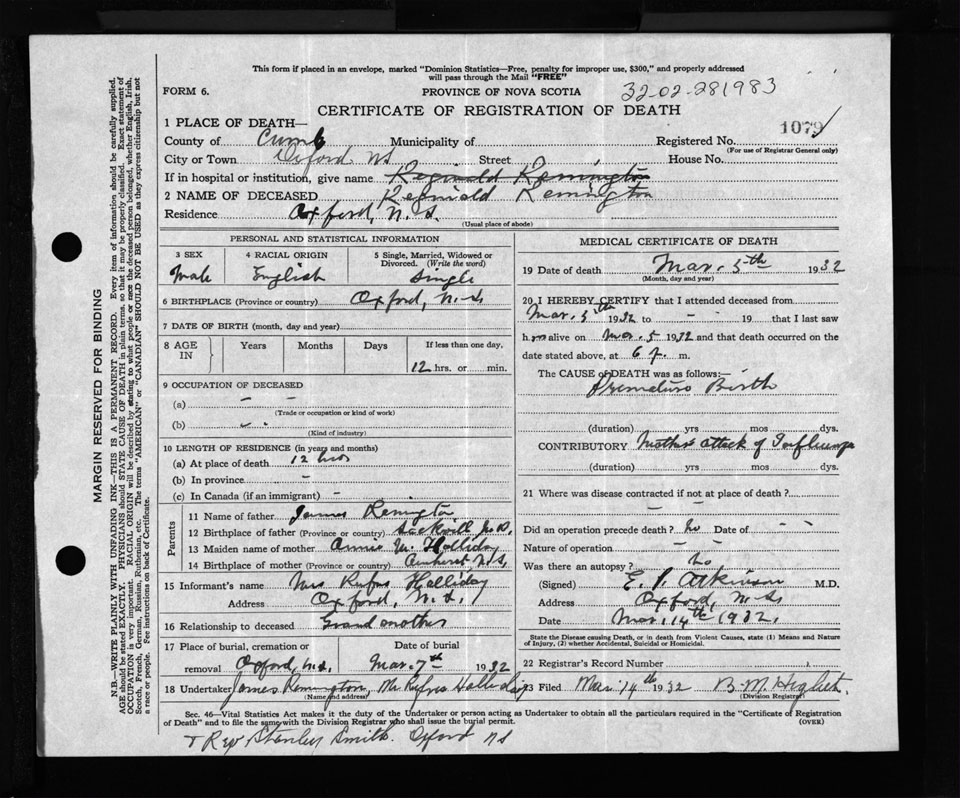 This form if placed in an envelope, marked "Dominion Statistics—Free, penalty for improper use, $300," and properly addressed
will pass through the Mail "FREE"
FORM 6.
PROVINCE OF NOVA SCOTIA
32-02-281983
CERTIFICATE OF REGISTRATION OF DEATH
1 PLACE OF DEATH—
1079
County of Cumb Municipality of Registered No.
(For use of Registrar General only)
City or Town Oxford NS Street House No.
If in hospital or institution, give name Reginald Remington
2 NAME OF DECEASED Reginald Remington
Residence Oxford, N.S.
(Usual place of abode)
PERSONAL AND STATISTICAL INFORMATION
3 SEX 4 RACIAL ORIGIN 5 Single, Married, Widowed or Divorced. (Write the word)
Male English Single
6 BIRTHPLACE (Province or country) Oxford, N.S
7 DATE OF BIRTH (month, day and year)
8 AGE IN Years Months Days If less than one day,
12 hrs. or min.
9 OCCUPATION OF DECEASED
(a) – –
(Trade or occupation or kind of work)
(b) – -
(Kind of industry)
10 LENGTH OF RESIDENCE (in years and months)
(a) At place of death 12 hrs
(b) In province –
(c) In Canada (if an immigrant) –
Parents
11 Name of father James Remington
12 Birthplace of father (Province or country) Sackville N.B.
13 Maiden name of mother Annie M. Holliday
14 Birthplace of mother (Province or country) Amherst, N.S.
15 Informant's name Mrs Rufus Holliday
Address Oxford, N.S.
16 Relationship to deceased Grandmother
17 Place of burial, cremation or removal Oxford, N.S. Date of burial Mar. 7th 1932
18 Undertaker James Remington, Mr Rufus Holliday
(Name and address)
MEDICAL CERTIFICATE OF DEATH
19 Date of death Mar. 5th 1932
(Month, day and year)
20 I HEREBY CERTIFY that I attended deceased from
Mar. 5th 1932 to – – 19 that I last saw
h im alive on Mar. 5 1932 and that death occurred on the
date stated above, at 6 p. m.
The CAUSE of DEATH was as follows:
Premature Birth
(duration) yrs mos dys.
CONTRIBUTORY Mothers attack of Influenza
(duration) yrs mos dys.
21 Where was disease contracted if not at place of death?
– –
Did an operation precede death? No Date of – –
Nature of operation – –
Was there an autopsy? No
(Signed) E. J. Atkinson M.D.
Address Oxford, N.S
Date Mar. 14th 1932.
State the Disease causing Death, or in death from Violent Causes, state (1) Means and Nature
of Injury, (2) whether Accidental, Suicidal or Homicidal.
22 Registrar's Record Number
23 Filed Mar 14th 1932 B. M.
(Division Registrar)
Sec. 46—Vital Statistics Act makes it the duty of the Undertaker or person acting as Undertaker to obtain all the particulars required in the "Certificate of Registration
of Death" and to file the same with the Division Registrar who shall issue the burial permit.
(OVER)
+ Rev. Stanley Smith. Oxford NS
MARGIN RESERVED FOR BINDING
N.B.—WRITE PLAINLY WITH UNFADING INK—THIS IS A PERMANENT RECORD. Every item of information should be carefully supplied.
AGE should be stated EXACTLY. PHYSICIANS should STATE CAUSE OF DEATH in plain terms, so that it may be properly classified. Exact statement of
OCCUPATION is very important. RACIAL ORIGIN will be described by stating to what people or race the deceased person belonged, whether English, Irish,
Scotch, French, German, Russian, Ruthenian, etc. The terms "AMERICAN" or "CANADIAN" SHOULD NOT BE USED as they express citizenship but not
a race or people. See instructions on back of Certificate.